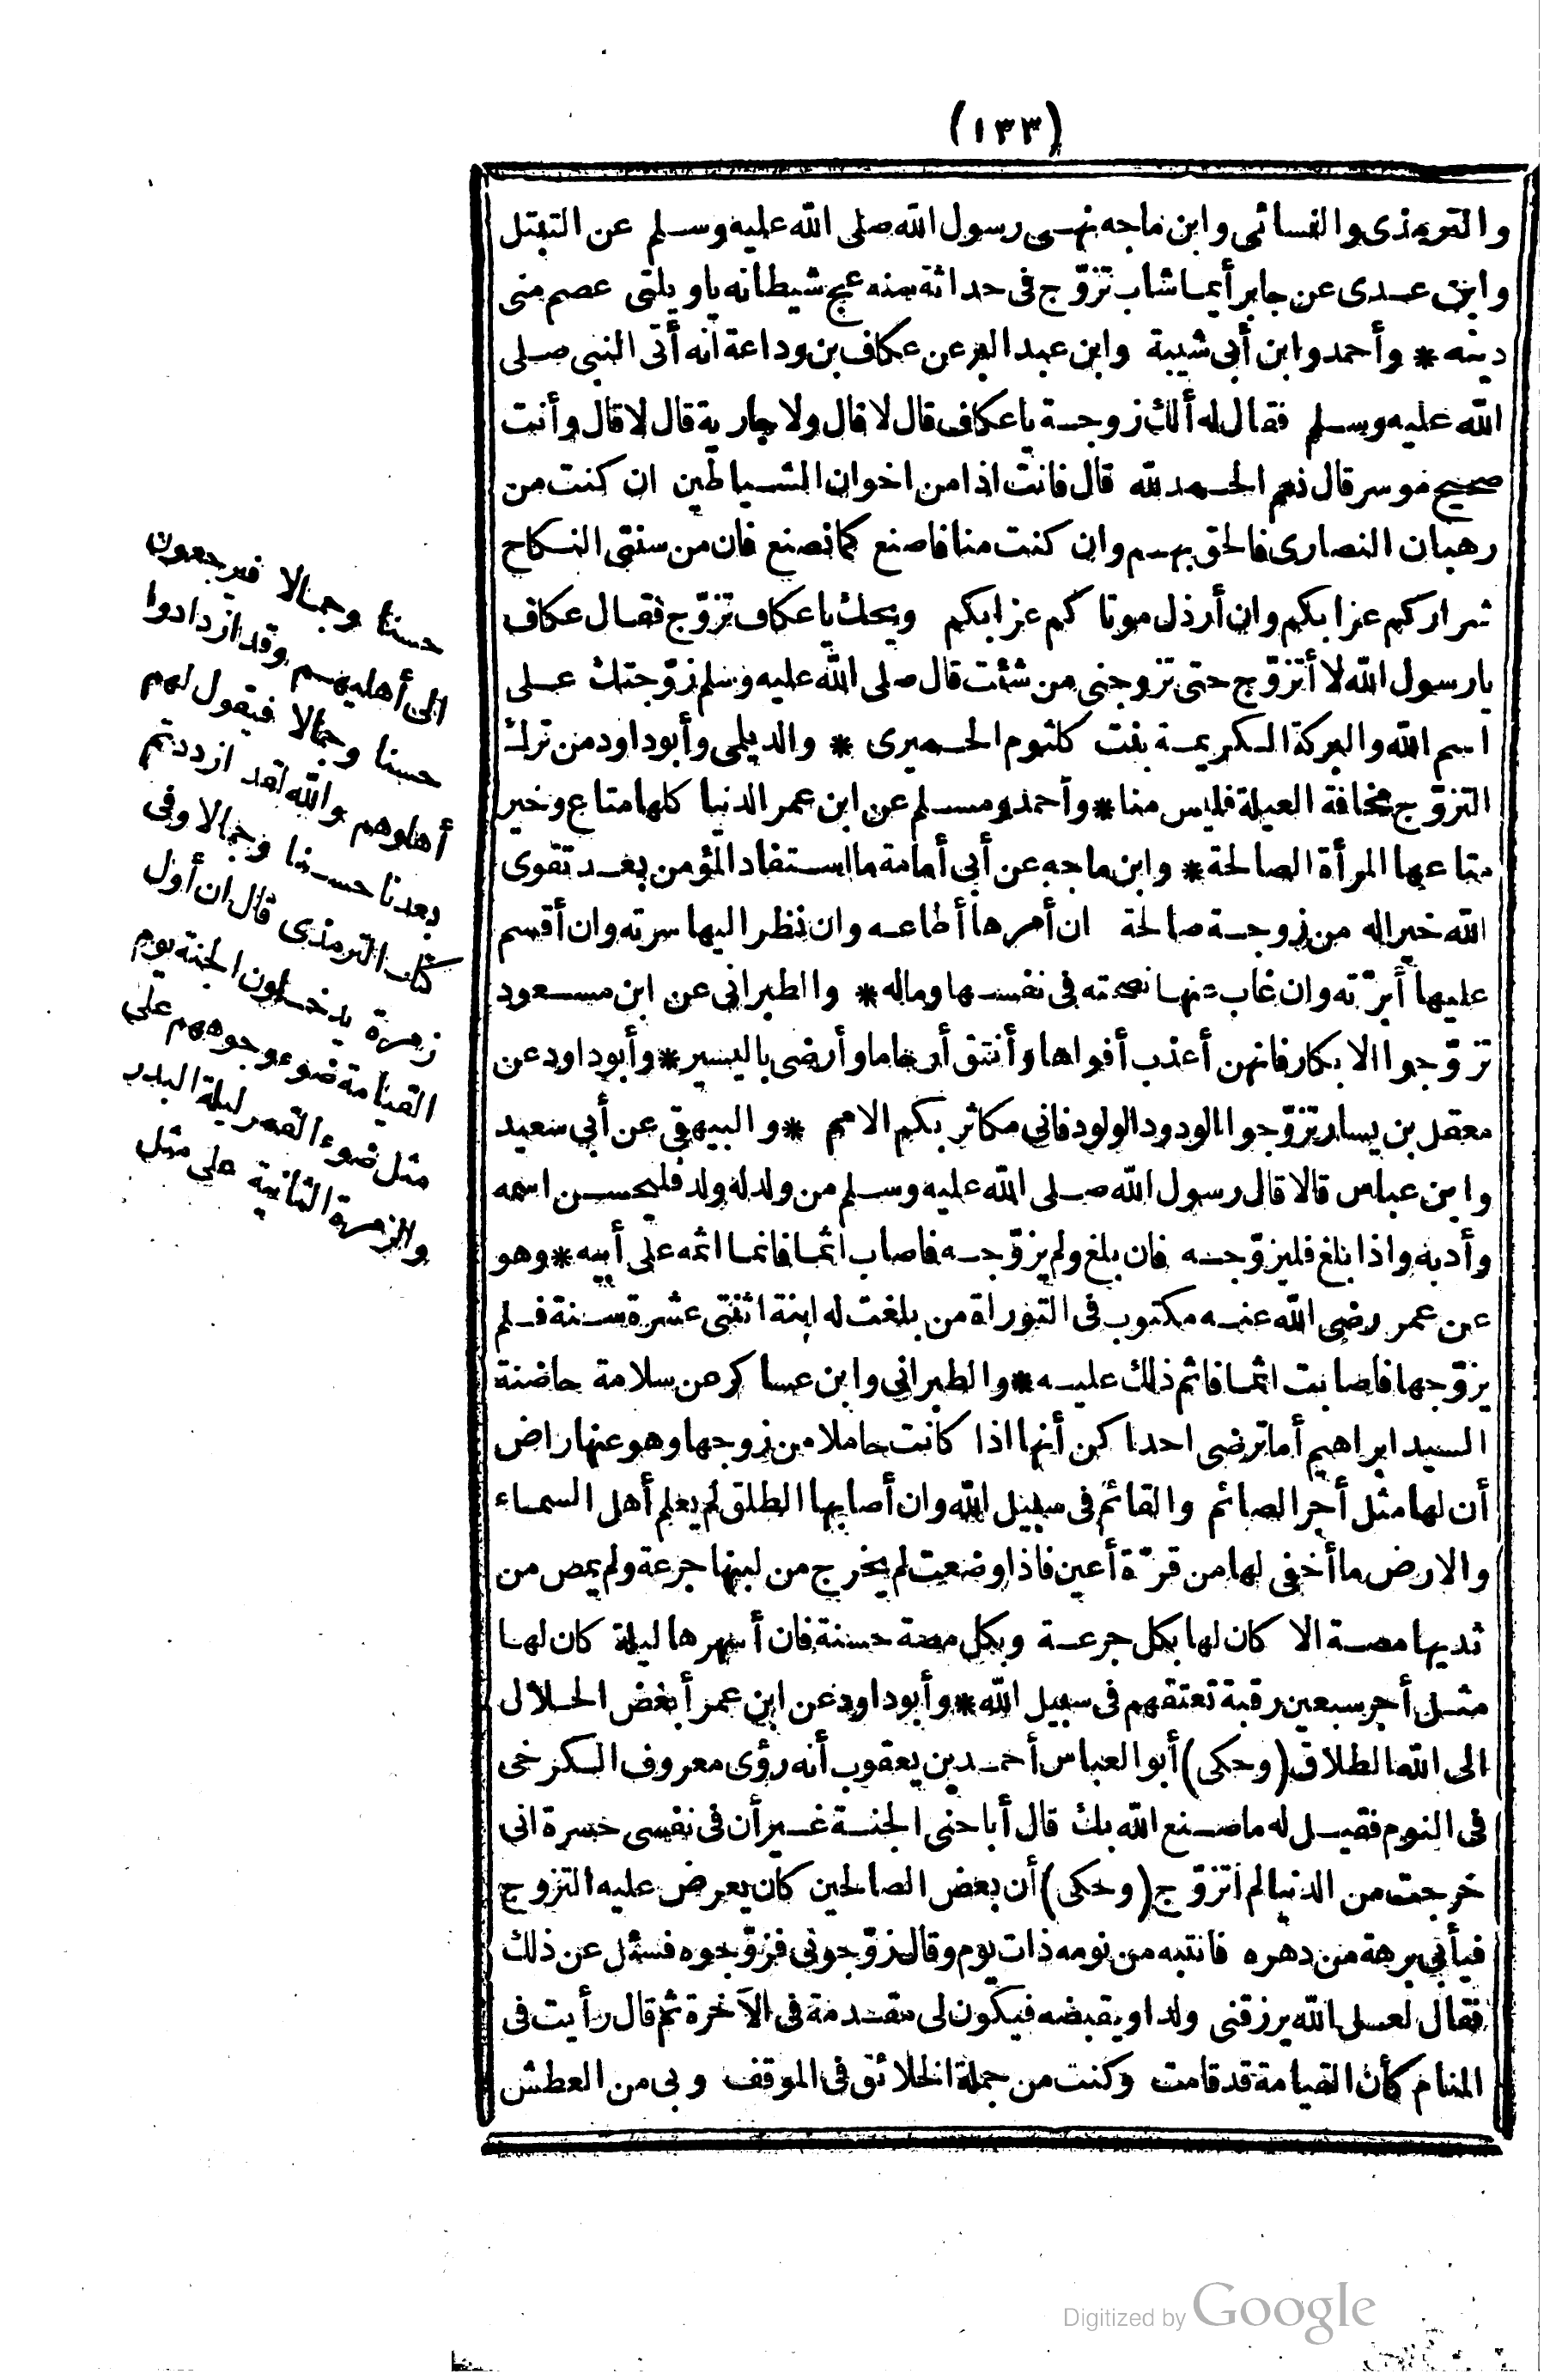 (١٣٣)
والترمذى والنسائى وابن ماجه نهى رسول الله صلى الله عليه وسلم عن التبتل
وابن عدى عن جابر أيما شاب تزوّج فى حداثة سنه عج شيطانه ياويلتى عصم منى
دينه * وأحمد وابن أبى شيبة وابن عبد البر عن عكاف بن وداعة انه أتى النبى صلى
الله عليه وسلم فقال له ألك زوجة يا عكاف قال لا قال ولا جارية قال لا قال وأنت
صحيح موسر قال نعم الحمد لله قال فانت اذا من اخوان الشياطين ان كنت من
رهبان النصارى فالحق بهم وان كنت منا فاصنع كما نصنع فان من سنتى النكاح
شراركم عزابكم وان أرذل موتاكم عزابكم ويحك يا عكاف تزوّج فقال عكاف
يارسول الله لا أتزوّج حتى تزوجنى من شئت قال صلى الله عليه وسلم زوّجتك على
اسم الله والبركة الكريمة بنت كلثوم الحميرى * والديلى وأبو داود من ترك
التزوّج مخافة العيلة فليس منا * وأحمد ومسلم عن ابن عمر الدنيا كلها متاع وخير
متاعها المرأة الصالحة * وابن ماجه عن أبى أمامة ما استفاد المؤمن بعد تقوى
الله خيرا له من زوجة صالحة ان أمرها أطاعه وان نظر اليها سرته وان أقسم
عليها أبرّته وان غاب عنها نصحته فى نفسها وماله * والطبرانى عن ابن مسعود
تزوّجوا الابكار فانهن أعذب أفواها وأنتق أرحاما وأرضى باليسير * وأبو داود عن
معقل بن يسار تزوّجوا الودود الولود فانى مكاثر بكم الامم * والبيهقى عن أبى سعيد
وابن عباس قالا قال رسول الله صلى الله عليه وسلم من ولد له ولد فليحسن اسمه
وأدبه واذا بلغ فليزوّجه فان بلغ ولم يزوّجه فاصاب اثما فانما اثمه على أبيه * وهو
عن عمر رضى الله عنه مكتوب فى التوراة من بلغت له ابنة اثنتى عشرة سنة فلم
يزوّجها فاصابت اثما فاثم ذلك عليه * والطبرانى وابن عساكر عن سلامة حاضنة
السيد ابراهيم أما ترضى احداكن أنها اذا كانت حاملا من زوجها وهو عنها راض
أن لها مثل أجر الصائم والقائم فى سبيل الله وان أصابها الطلق لم يعلم أهل السماء
والارض ما أخفى لها من قرّة أعين فاذا وضعت لم يخرج من لبنها جرعة ولم يمص من
ثديها مصة الا كان لها بكل جرعة وبكل مصة حسنة فان أسهرها ليلة كان لها
مثل أجر سبعين رقبة تعتقهم فى سبيل الله * وأبو داود عن ابن عمر أبغض الحلال
الى الله الطلاق (وحكى) أبو العباس أحمد بن يعقوب أنه رؤى معروف الكرخى
فى النوم فقيل له ما صنع الله بك قال أباحنى الجنة غير أن فى نفسى حسرة انى
خرجت من الدنيا لم أتزوّج (وحكى) أن بعض الصالحين كان يعرض عليه التزوج
فيأبى برهة من دهره فانتبه من نومه ذات يوم وقال زوّجونى فزوّجوه فسئل عن ذلك
فقال لعل الله يرزقنى ولدا ويقبضه فيكون لى مقدمة فى الآخرة ثم قال رأيت فى
المنام كأن القيامة قد قامت وكنت من جملة الخلائق فى الموقف وبى من العطش
حسنا وجمالا فيرجعون
الى أهليهم وقد ازدادوا
حسنا وجمالا فيقول لهم
أهلوهم والله لقد ازددتم
بعدنا حسنا وجمالا وفى
كتاب الترمذى قال ان أول
زمرة يدخلون الجنة يوم
القيامة ضوء وجوههم على
مثل ضوء القمر ليلة البدر
والزمرة الثانية على مثل
Digitized by Google